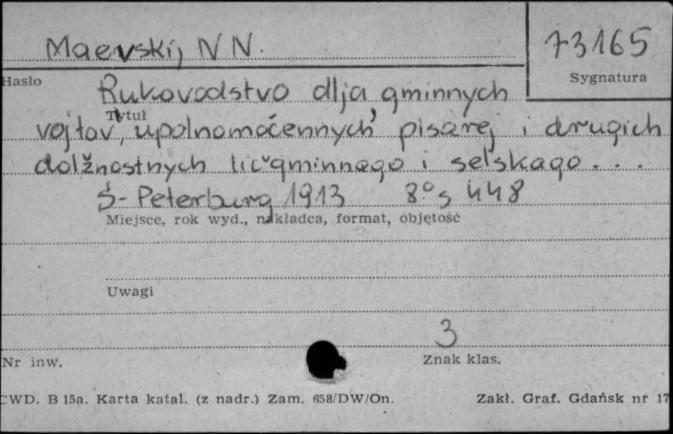 Maevskij N N.
73165
Hasło
Sygnatura
Rukovodstvo dlja gminnych
Tytuł
vojtov, upolnomoćennych, pisarej i drugich
dolžnostnych lic gminnago i selskago...
S-Peterburg 1913 8° s 448
Miejsce, rok wyd., nakładca, format, objętość
Uwagi
3
Nr inw.
Znak klas.
CWD. B 15a. Karta katal. (z nadr.) Zam. 658/DW/On.
Zakł. Graf. Gdańsk nr 17